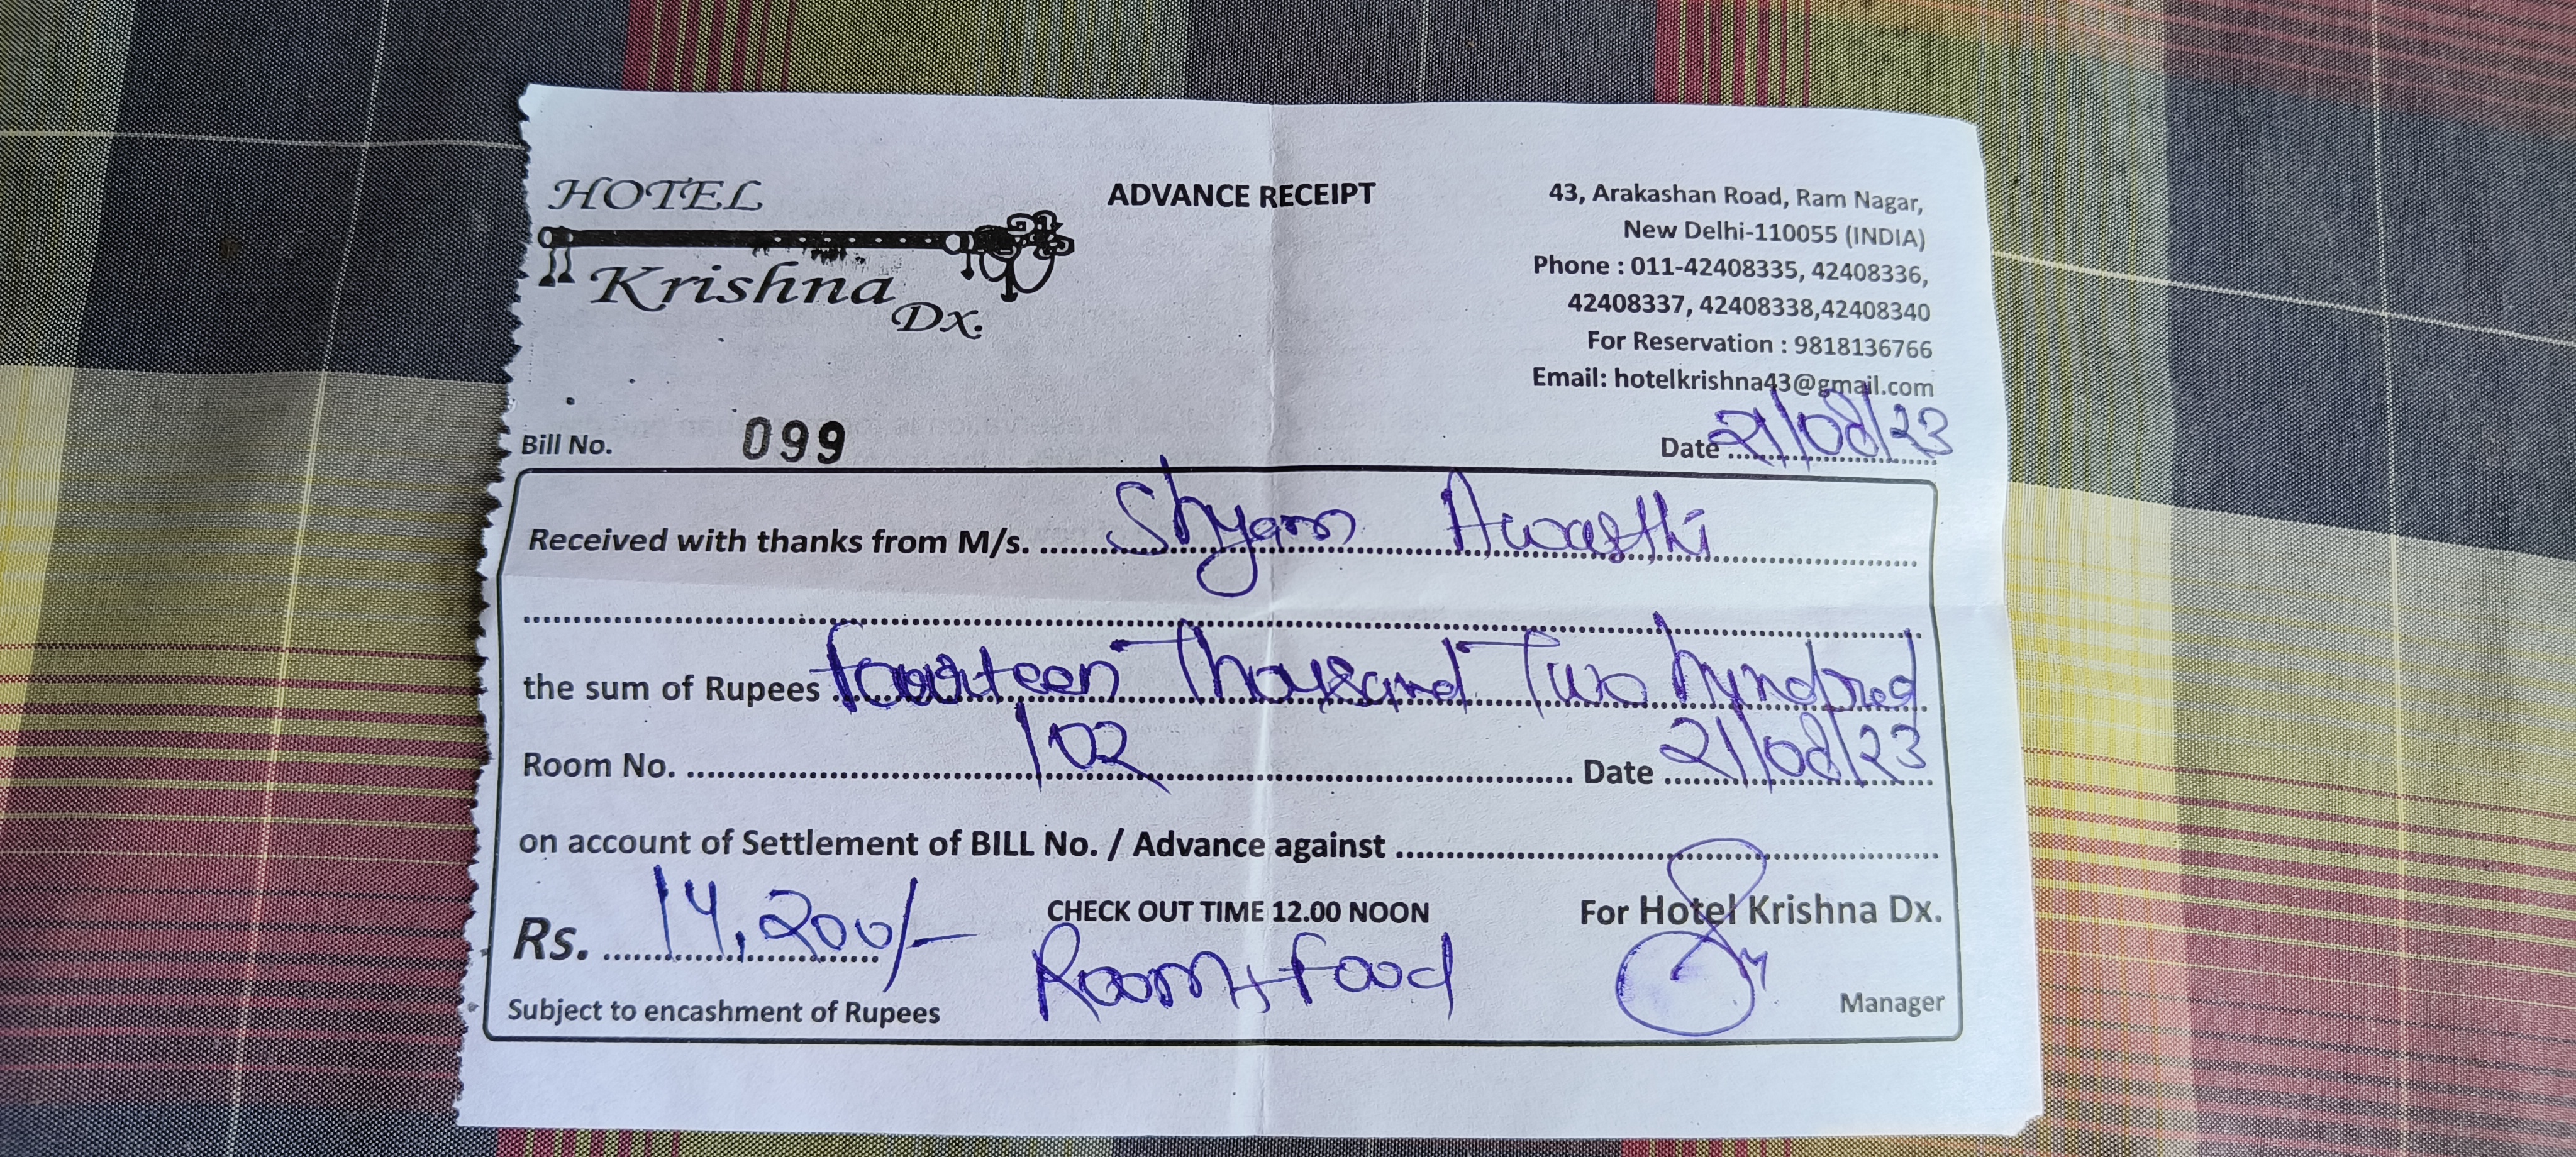 HOTEL
Krishna
Dx.
ADVANCE RECEIPT
43, Arakashan Road, Ram Nagar,
New Delhi-110055 (INDIA)
Phone : 011-42408335, 42408336,
42408337, 42408338,42408340
For Reservation : 9818136766
Email: hotelkrishna43@gmail.com
Bill No. 099
Date 21/08/23
Received with thanks from M/s. Shyam Awasthi
the sum of Rupees fourteen Thousand Two hundred
Room No. 102 Date 21/08/23
on account of Settlement of BILL No. / Advance against
Rs. 14,200/- CHECK OUT TIME 12.00 NOON For Hotel Krishna Dx.
Room + food
Subject to encashment of Rupees Manager